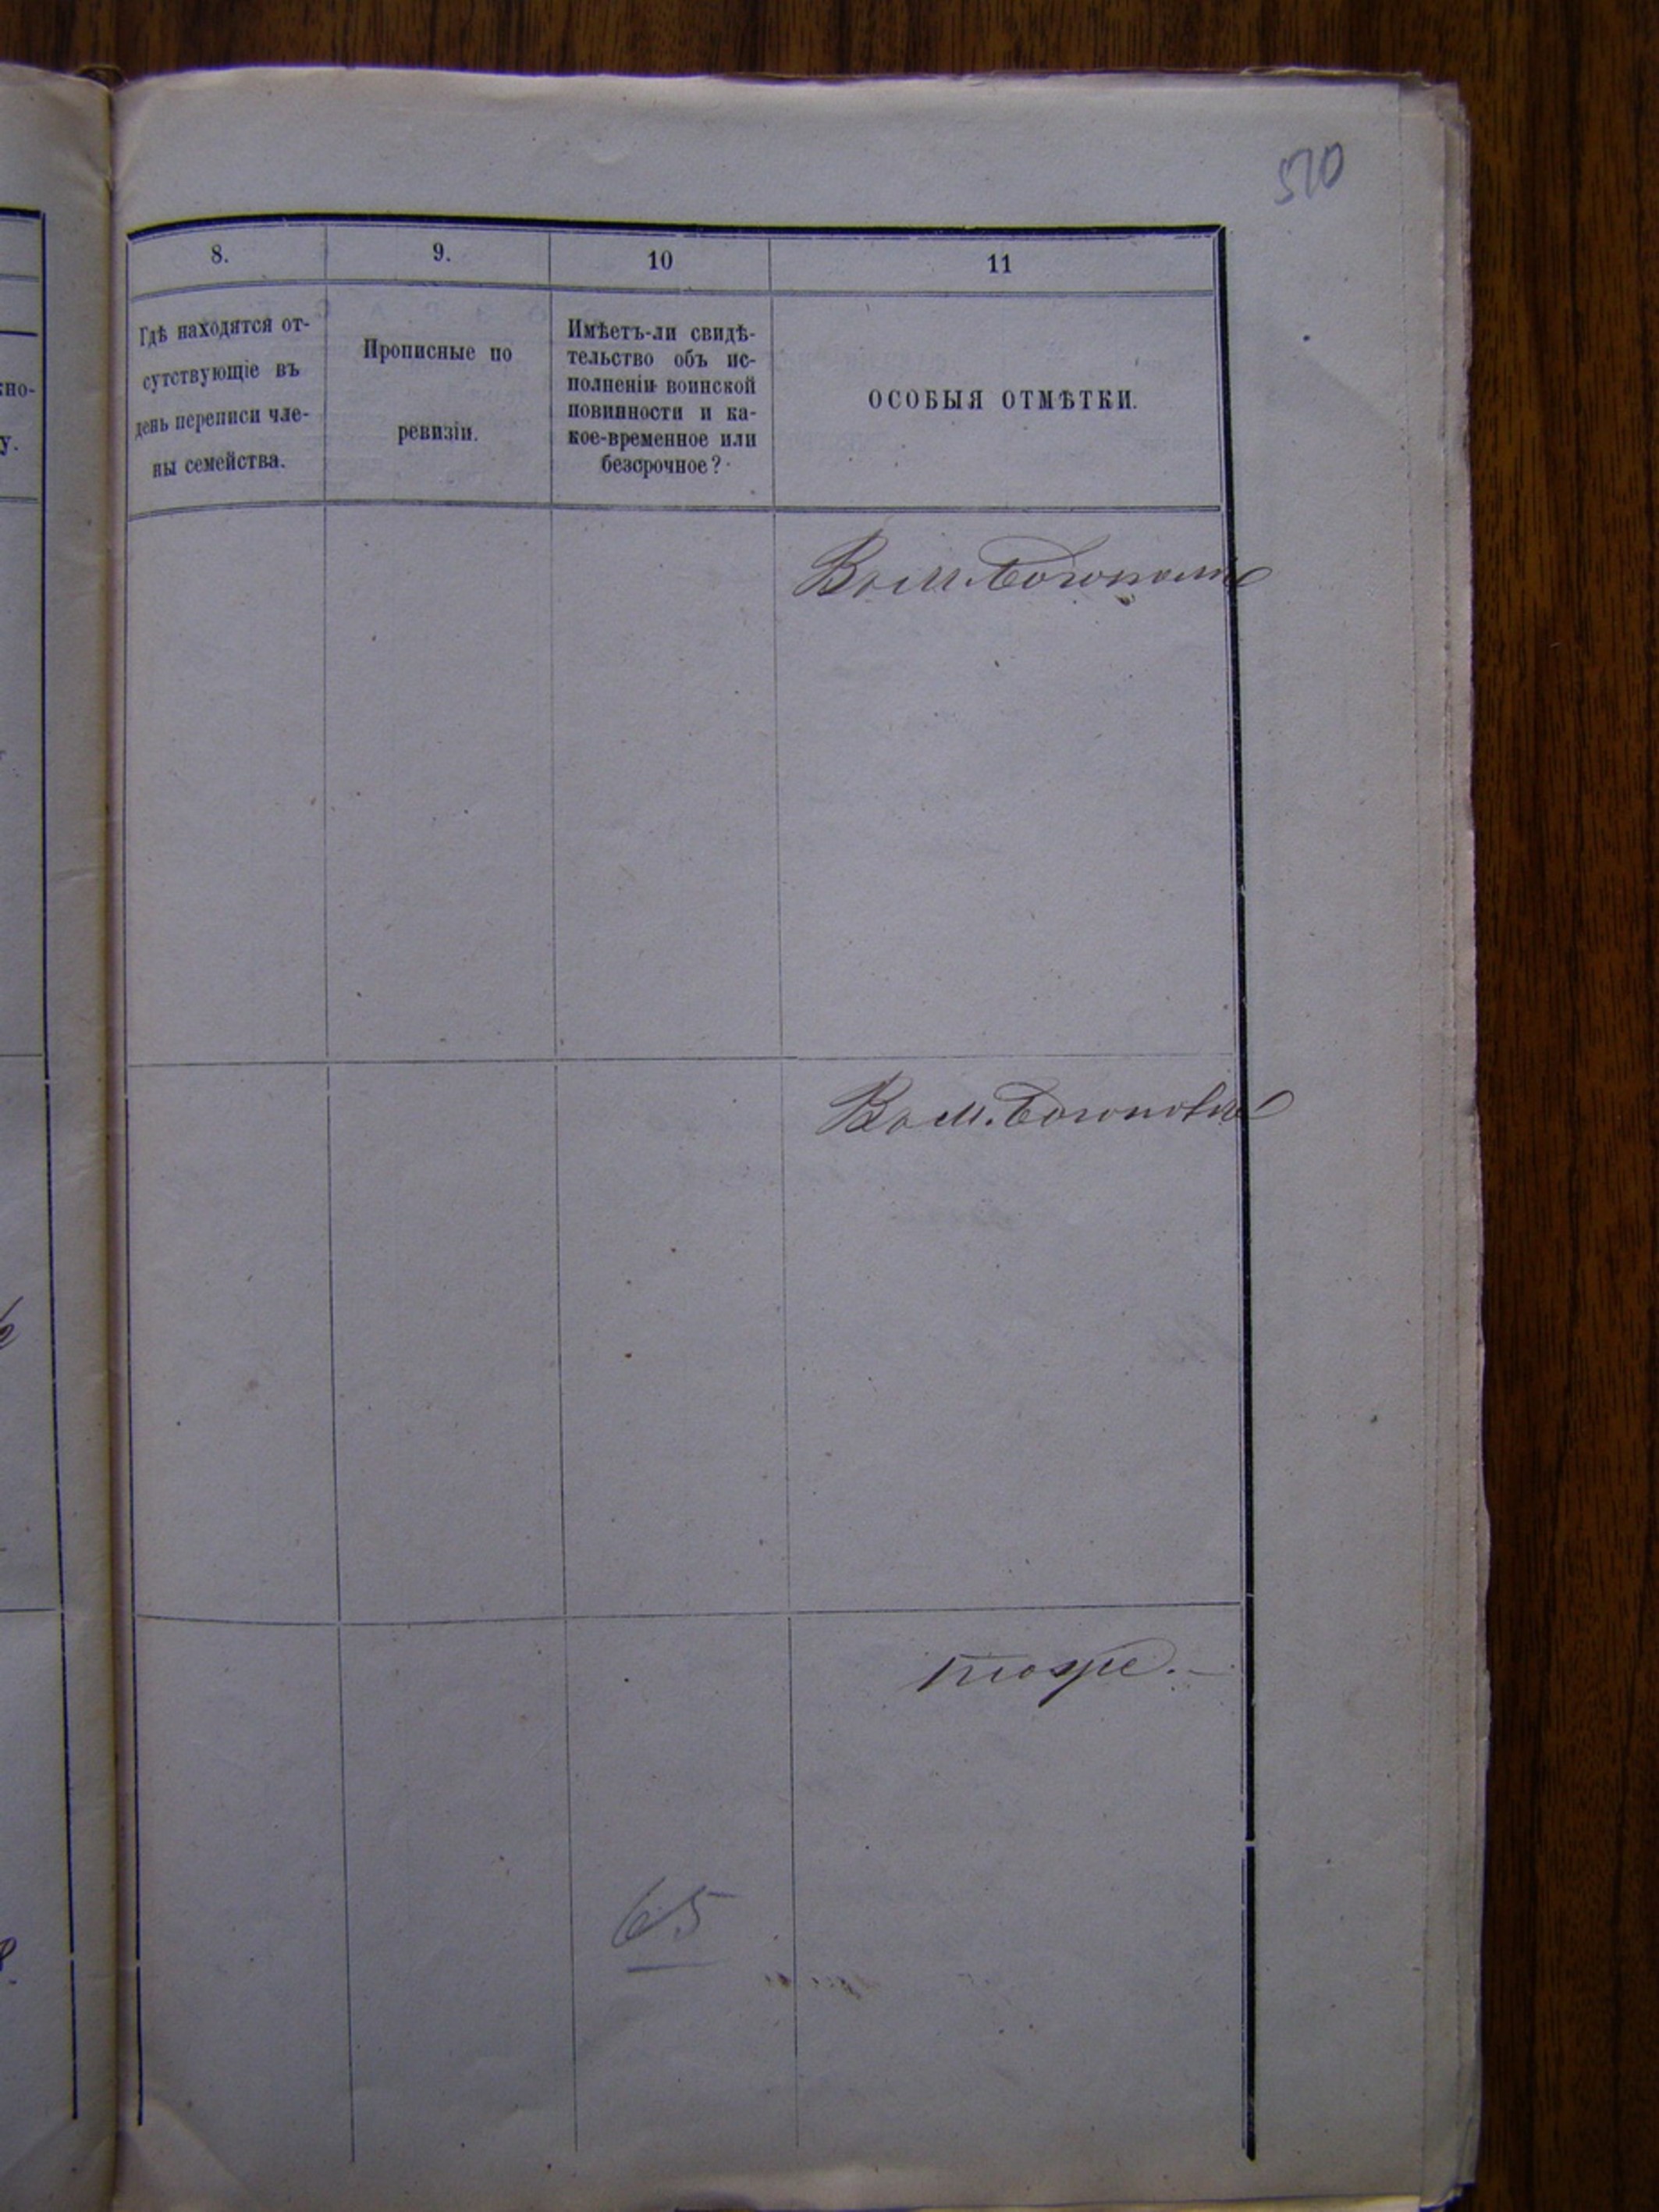 510
8.
9.
10
11
Гдѣ находятся от-
сутствующіе въ
день переписи чле-
ны семейства.
Прописные по
ревизіи.
Имѣетъ-ли свидѣ-
тельство объ ис-
полненіи воинской
повинности и ка-
кое-временное или
безсрочное?
ОСОБЫЯ ОТМѢТКИ.
кно-
у.
Въ М. Богополѣ
Въ М. Богополѣ
тоже.
65